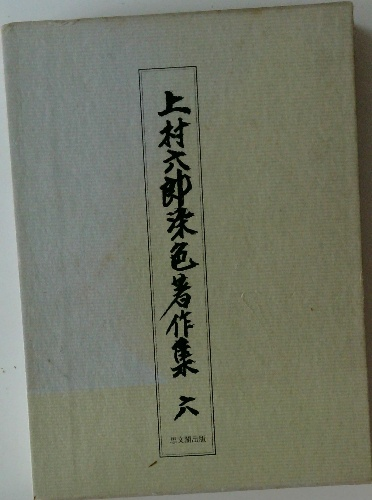 上村六郎染色著作集 六
思文閣出版